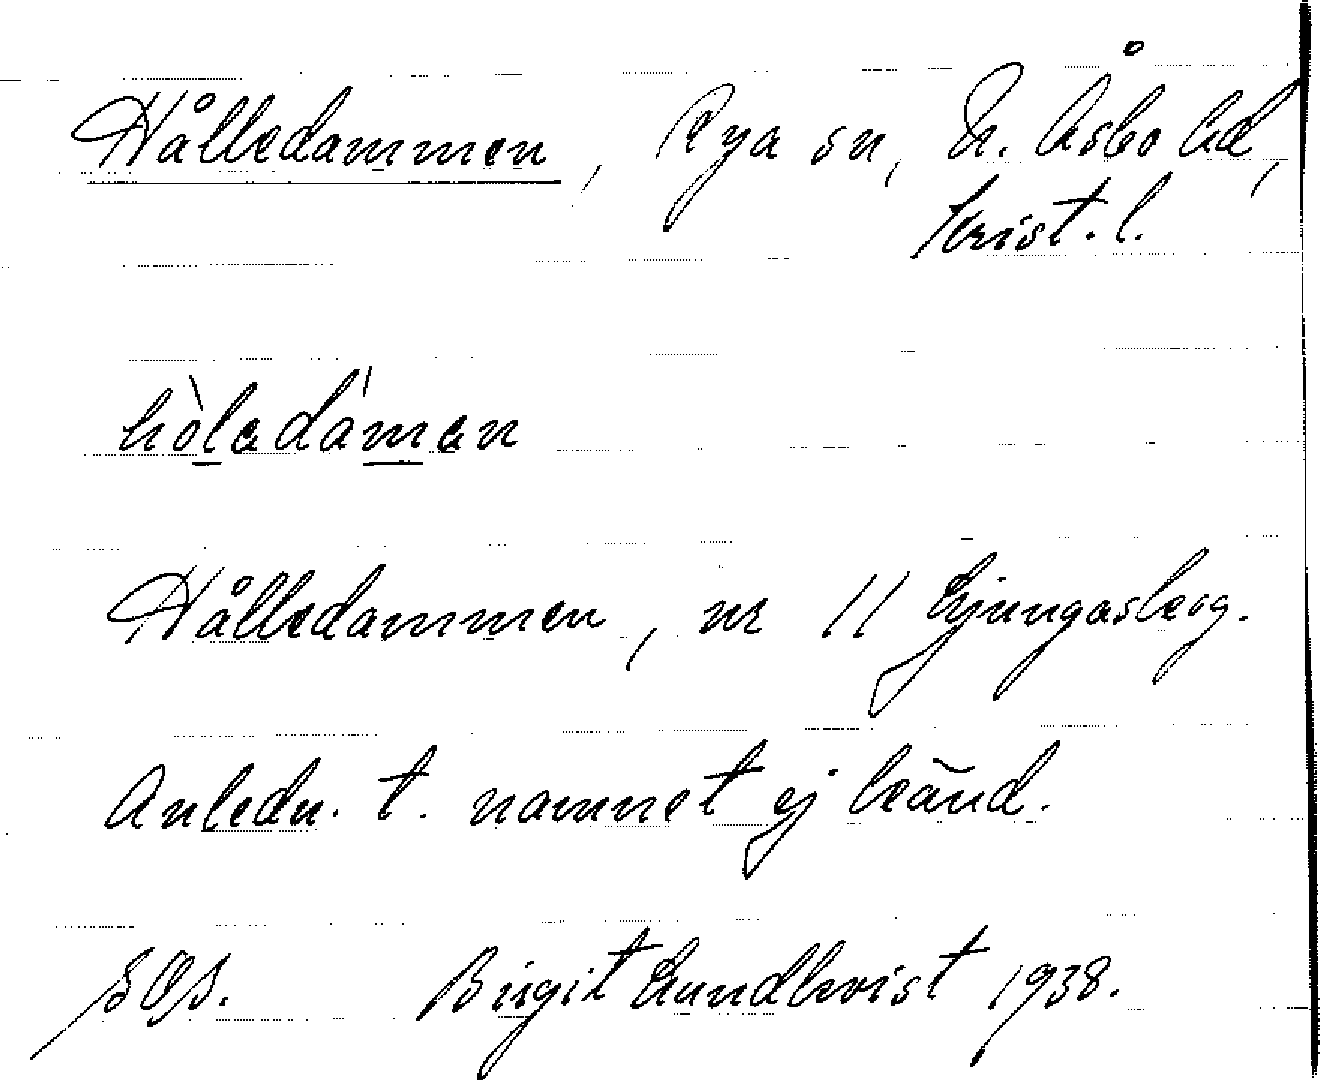 Hålledammen, Rya sn, N. Åsbo hd,
Krist. l.
hòladámən
Hålledammen, nr 11 Ljungasberg.
Anledn. t. namnet ej känd.
Birgit Lundkvist 1938.